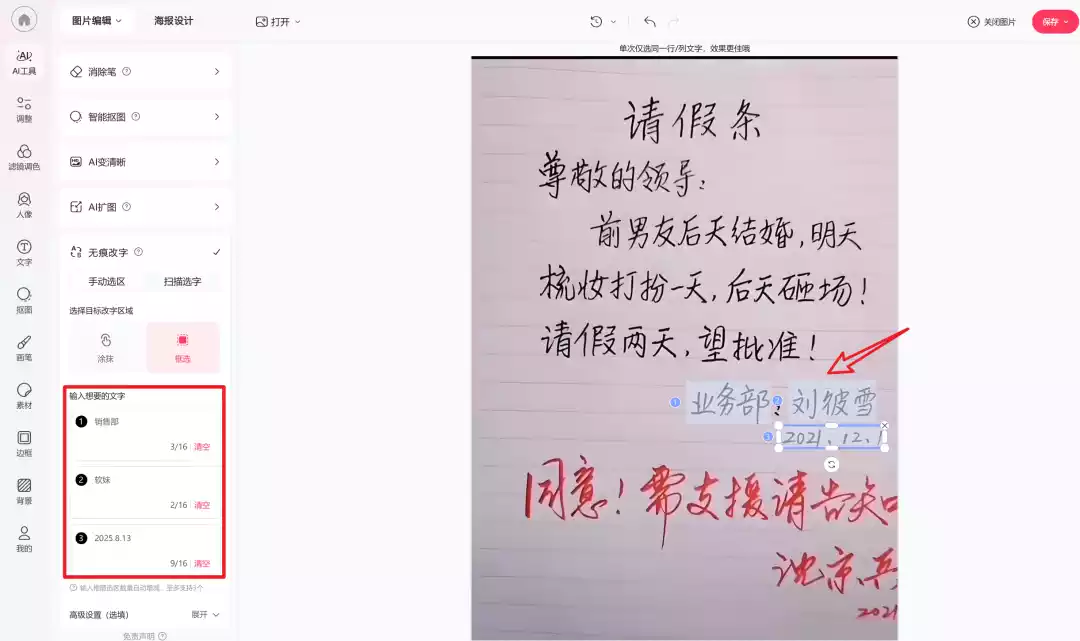 图片编辑
海报设计
打开
关闭图片
保存
AI工具
调整
滤镜调色
人像
文字
抠图
画笔
素材
边框
背景
我的
消除笔
智能抠图
AI变清晰
AI扩图
无痕改字
手动选区
扫描选字
选择目标改字区域
涂抹
框选
输入想要的文字
1 销售部
3/16 清空
2 软妹
2/16 清空
3 2025.8.13
9/16 清空
高级设置（选填）
展开
免责声明
单次仅选同一行/列文字，效果更佳哦
请假条
尊敬的领导：
前男友后天结婚，明天
梳妆打扮一天，后天砸场！
请假两天，望批准！
1 业务部 2 : 刘彼雪
3 2021.12.1
同意！需支援请告知
沈京兵
2021